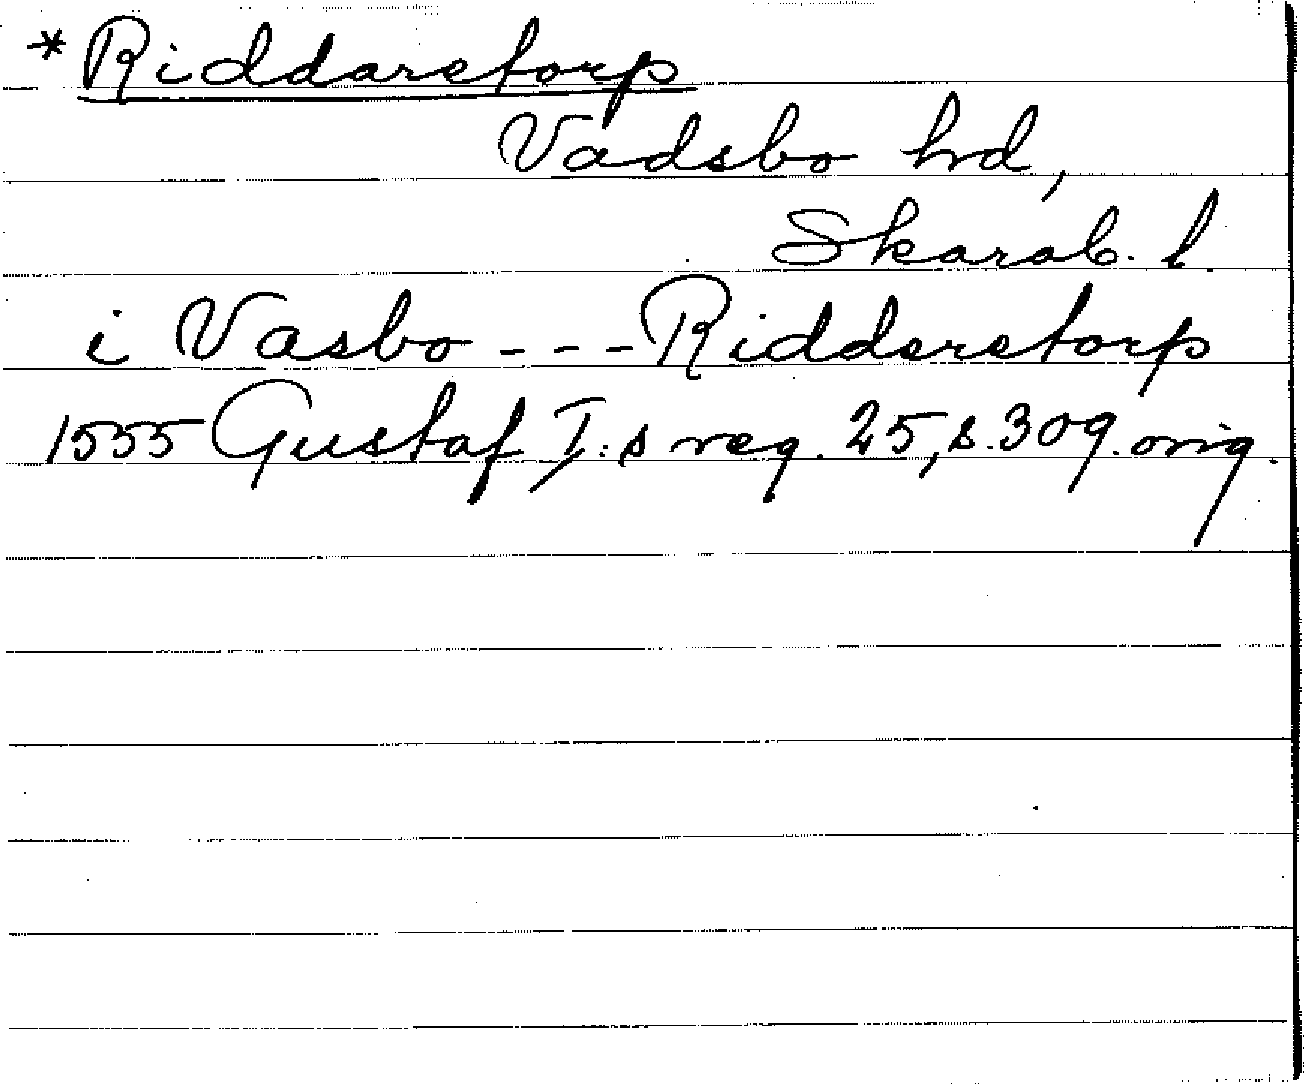 *Riddarstorp
Vadsbo hd,
Skarab. l.
i Vasbo --- Ridderstorp
1555 Gustaf I:s reg. 25, s. 309. orig.